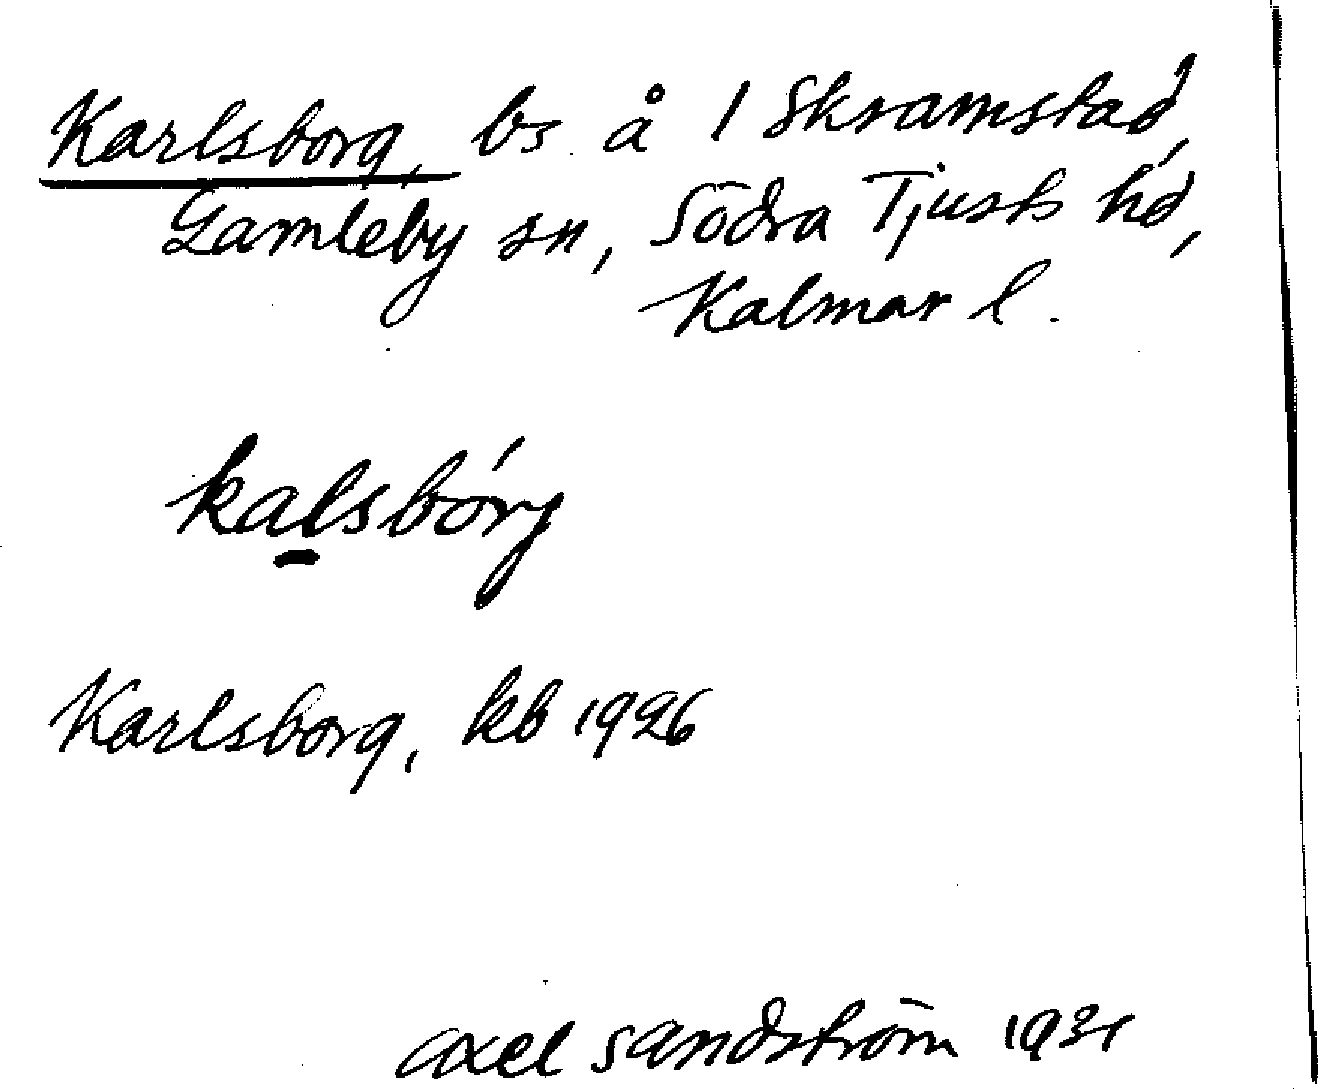 Karlsborg, bs. å 1 Skramstad,
Gamleby sn, Södra Tjusts hd,
Kalmar l.
kalsbórg
Karlsborg, kb 1926
Axel Sandström 1931